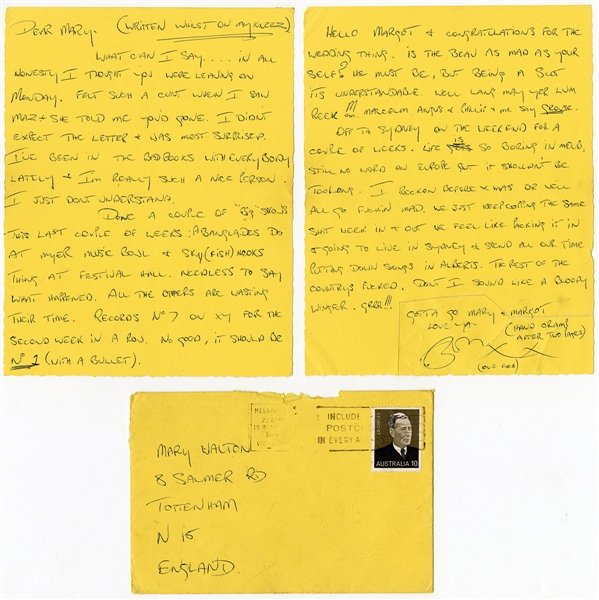 DEAR MARY. (WRITTEN WHILST ON MY KNEEZZ)
WHAT CAN I SAY..... IN ALL
HONESTY I THOUGHT YOU WERE LEAVING ON
MONDAY. FELT SUCH A CUNT WHEN I SAW
MAZ & SHE TOLD ME YOU'D GONE. I DIDNT
EXPECT THE LETTER & WAS MOST SURPRISED.
I'VE BEEN IN THE BAD BOOKS WITH EVERYBODY
LATELY & I'M REALLY SUCH A NICE PERSON.
I JUST DONT UNDERSTAND.
DONE A COUPLE OF "BIG" SHOWS
THIS LAST COUPLE OF WEEKS: A BANGLADES DO
AT MYER MUSIC BOWL & SKY(FISH) HOOKS
THING AT FESTIVAL HALL. NEEDLESS TO SAY
WHAT HAPPENED. ALL THE OTHERS ARE WASTING
THEIR TIME. RECORDS Nº 7 ON XY FOR THE
SECOND WEEK IN A ROW. NO GOOD, IT SHOULD BE
Nº 1 (WITH A BULLET).
HELLO MARGOT & CONGRATULATIONS FOR THE
WEDDING THING. IS THE BEAU AS MAD AS YOUR
SELF? HE MUST BE, BUT BEING A SCOT
ITS UNDERSTANDABLE. WELL LANG MAY YER LUM
REEK!!! MALCOLM ANGUS & PHILIP & ME SAY GROUSE.
OFF TO SYDNEY ON THE WEEKEND FOR A
COUPLE OF WEEKS. LIFE IS SO BORING IN MELB,
STILL NO WORD ON EUROPE BUT IT SHOULDN'T BE
TOO LONG. I RECKON BEFORE XMAS OR WELL
ALL GO FUCKIN MAD. WE JUST KEEP COPPING THE SAME
SHIT WEEK IN & OUT WE FEEL LIKE PACKING IT IN
& GOING TO LIVE IN SYDNEY & SPEND ALL OUR TIME
PUTTING DOWN SONGS IN ALBERTS. THE REST OF THE
COUNTRYS FUCKED. DONT I SOUND LIKE A BLOODY
WINGER. GRRR!!!
GOTTA GO MARY & MARGOT
LOVE YA. (HAND CRAMP
AFTER TWO PAGES)
BON XX
(ONE EACH)
INCLUDE
POSTC
IN EVERY A
AUSTRALIA 10
MARY WALTON
8 SALMER RD
TOTTENHAM
N 15
ENGLAND.